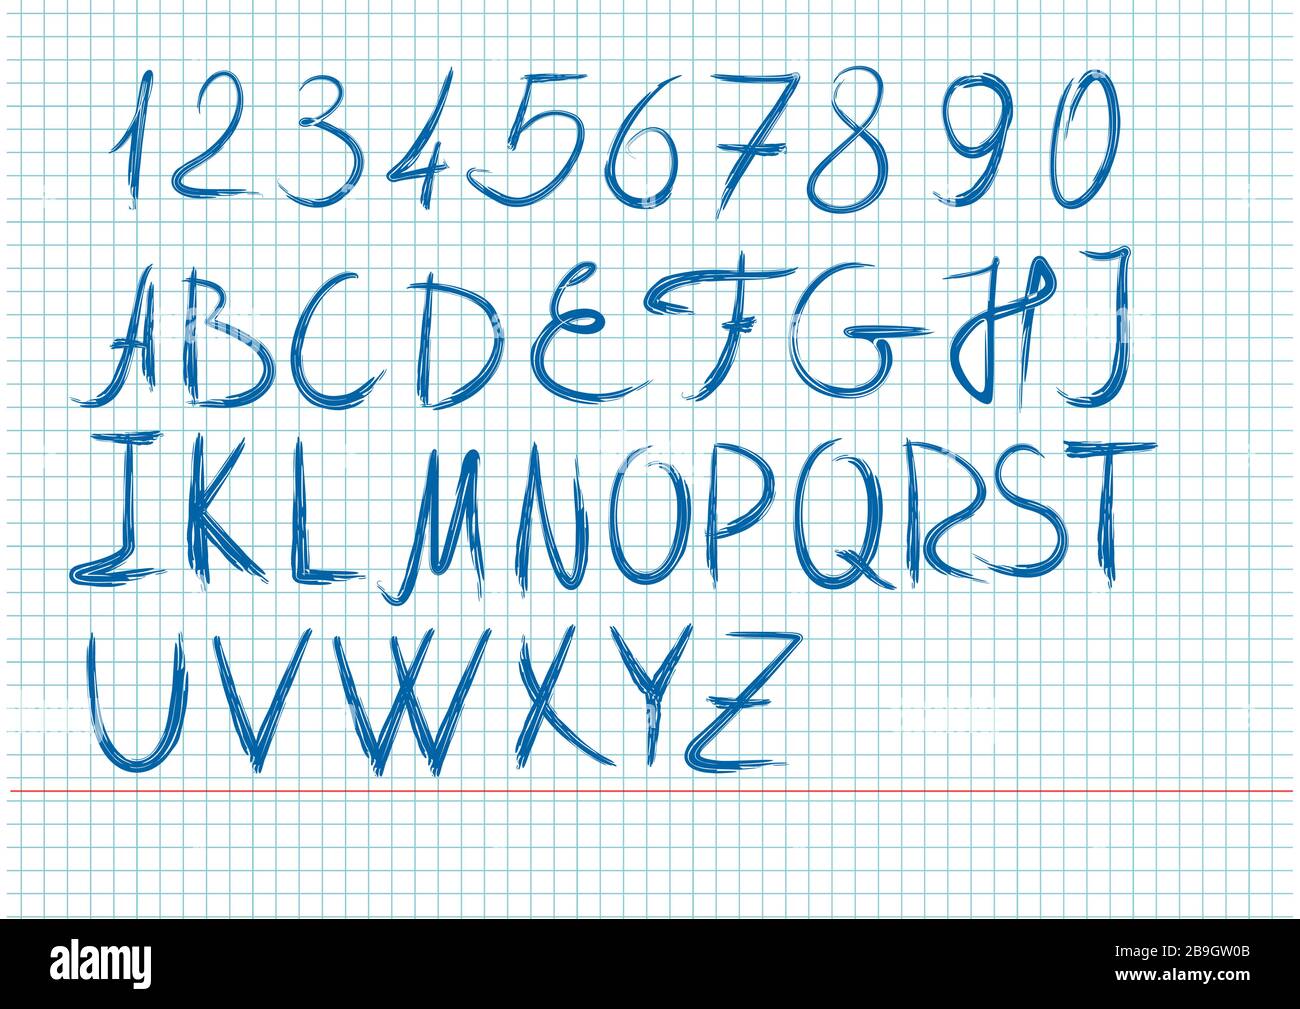 1234567890
ABCDEFGHJ
IKLMNOPQRST
UVWXYZ
alamy
Image ID: 2B9GW0B
www.alamy.com